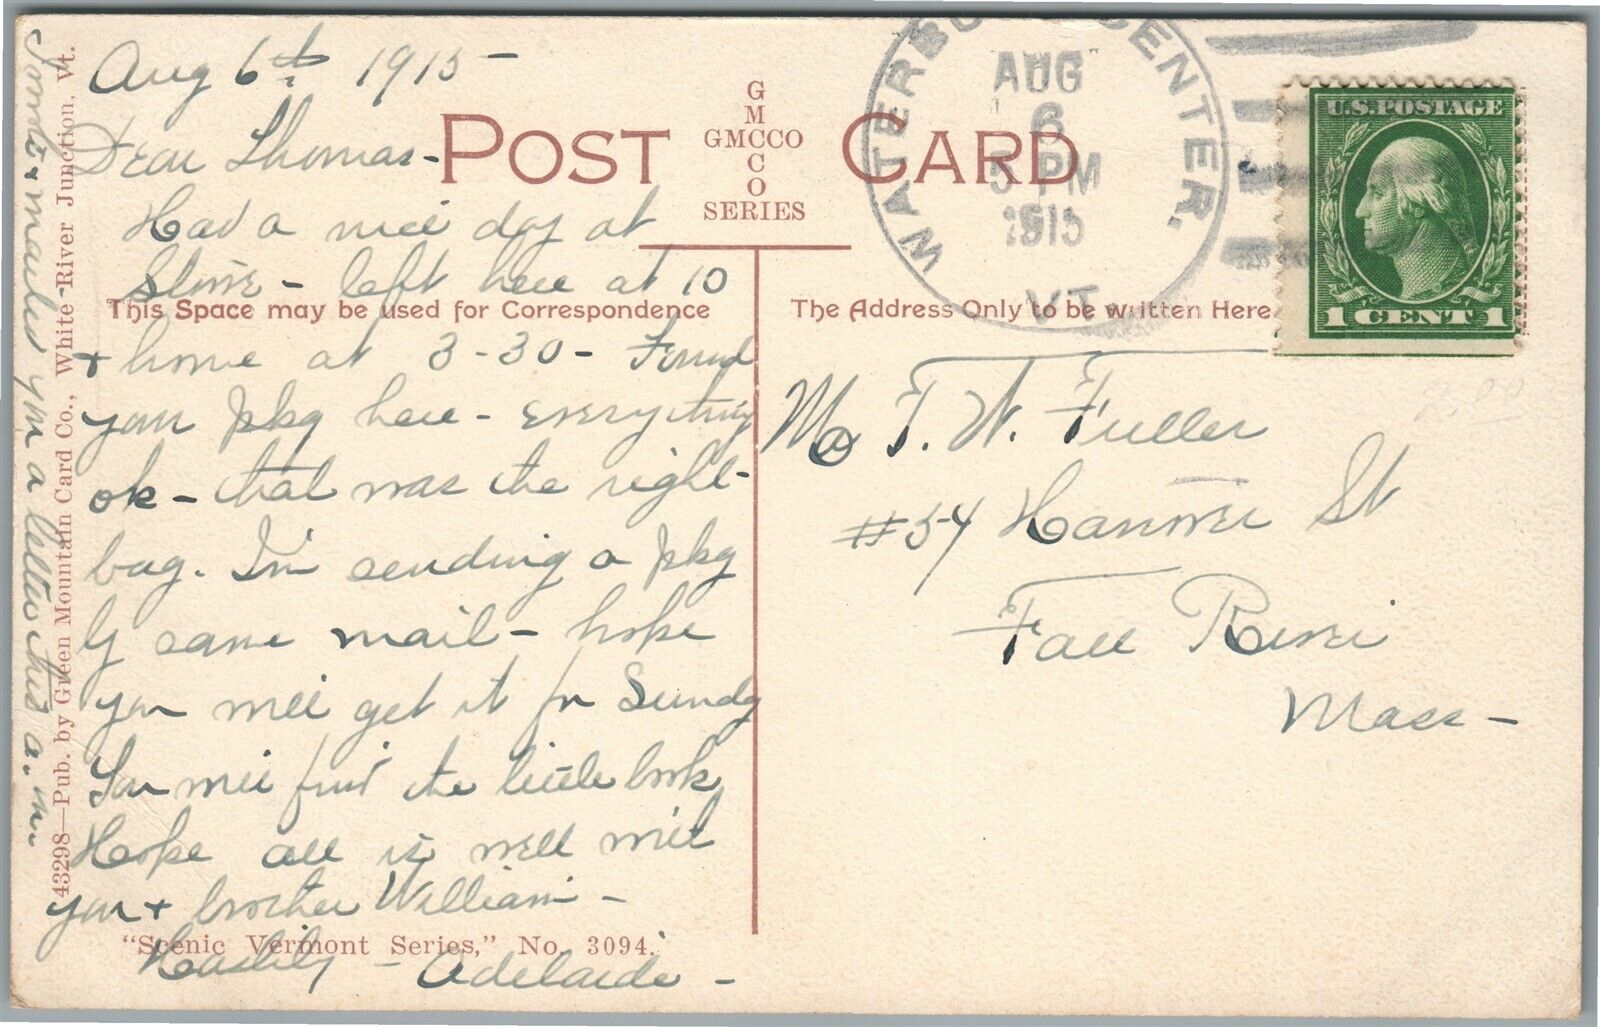 Aug 6th 1915-
Dear Thomas-
Had a nice day at
Stowe - left here at 10
+ home at 3-30- Found
your pkg here - everything
ok - that was the right
bag. I'm sending a pkg
by same mail - hope
you will get it for Sundy
You will find the little book
Hope all is well with
you + brother William -
Hastily - Adelaide -
mailed you a letter this a.m.
POST CARD
G
M
GMCCO
C
O
SERIES
This Space may be used for Correspondence
The Address Only to be written Here
43298-Pub. by Green Mountain Card Co., White River Junction, Vt.
"Scenic Vermont Series," No. 3094.
WATERBURY CENTER,
AUG
6
5 PM
1915
VT.
U.S. POSTAGE
1 CENT 1
Mr T. W. Fuller
#54 Hanover St
Fall River
Mass-